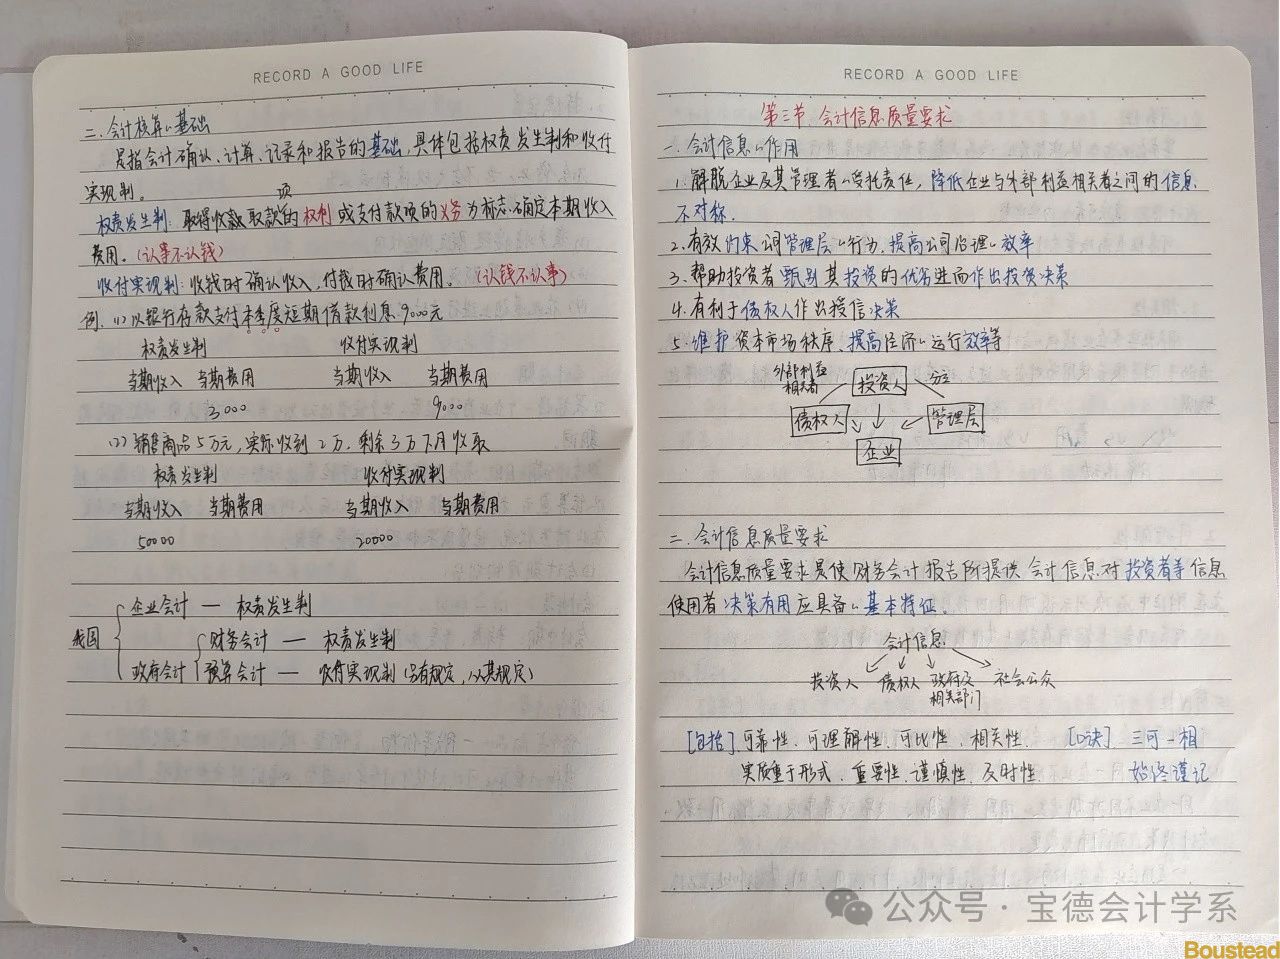 RECORD A GOOD LIFE
二.会计核算的基础
是指会计确认、计算、记录和报告的基础,具体包括权责发生制和收付
实现制。
项
权责发生制:取得收款 取款的权利或支付款项的义务为标志确定本期收入
费用。(认事不认钱)
收付实现制:收钱时确认收入,付钱时确认费用。(认钱不认事)
例.(1)以银行存款支付本季度短期借款利息9000元
权责发生制 收付实现制
当期收入 当期费用 当期收入 当期费用
3000 9000
(2)销售商品5万元,实际收到2万.剩余3万下月收取
权责发生制 收付实现制
当期收入 当期费用 当期收入 当期费用
50000 20000
企业会计 — 权责发生制
我国 财务会计 — 权责发生制
政府会计 预算会计 — 收付实现制(另有规定,从其规定)
RECORD A GOOD LIFE
第三节.会计信息质量要求
一.会计信息的作用
1.解脱企业及其管理者的受托责任,降低企业与外部利益相关者之间的信息
不对称.
2.有效约束公司管理层的行为,提高公司治理的效率
3.帮助投资者甄别其投资的优劣进而作出投资决策
4.有利于债权人作出授信决策
5.维护资本市场秩序.提高经济的运行效率等
外部利益
相关者
投资人 分红
债权人 管理层
企业
二.会计信息质量要求
会计信息质量要求是使财务会计报告所提供会计信息对投资者等信息
使用者决策有用应具备的基本特征.
会计信息
投资人 债权人 政府及 社会公众
相关部门
[包括].可靠性.可理解性.可比性.相关性. [口诀] 三可一相
实质重于形式.重要性.谨慎性.及时性. 始终谨记
公众号 · 宝德会计学系
Boustead